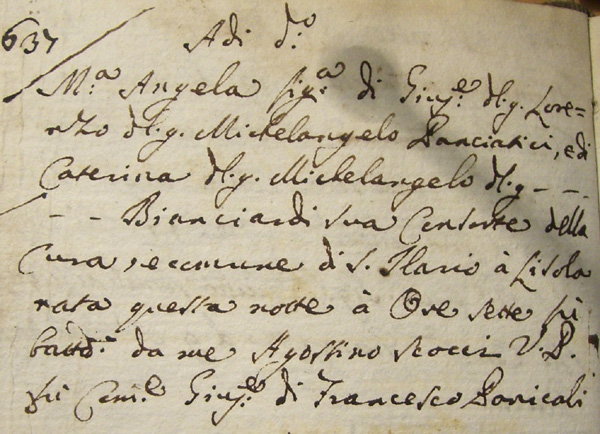 637 Adi d.o
M.a Angela fig.a di Gius.e d'.g. Loren=
nzo d'.g. Michelangelo Panciatici, e di
Caterina d'.g. Michelangelo d'.g - -
- - Bianciardi sua Consorte della
Cura, e comune di S. Ilario à Lisola
nata questa notte à Ore sette fù
battd. da me Agostino Scocci V.P.
fù Com.e Gius.e di Francesco Panicali